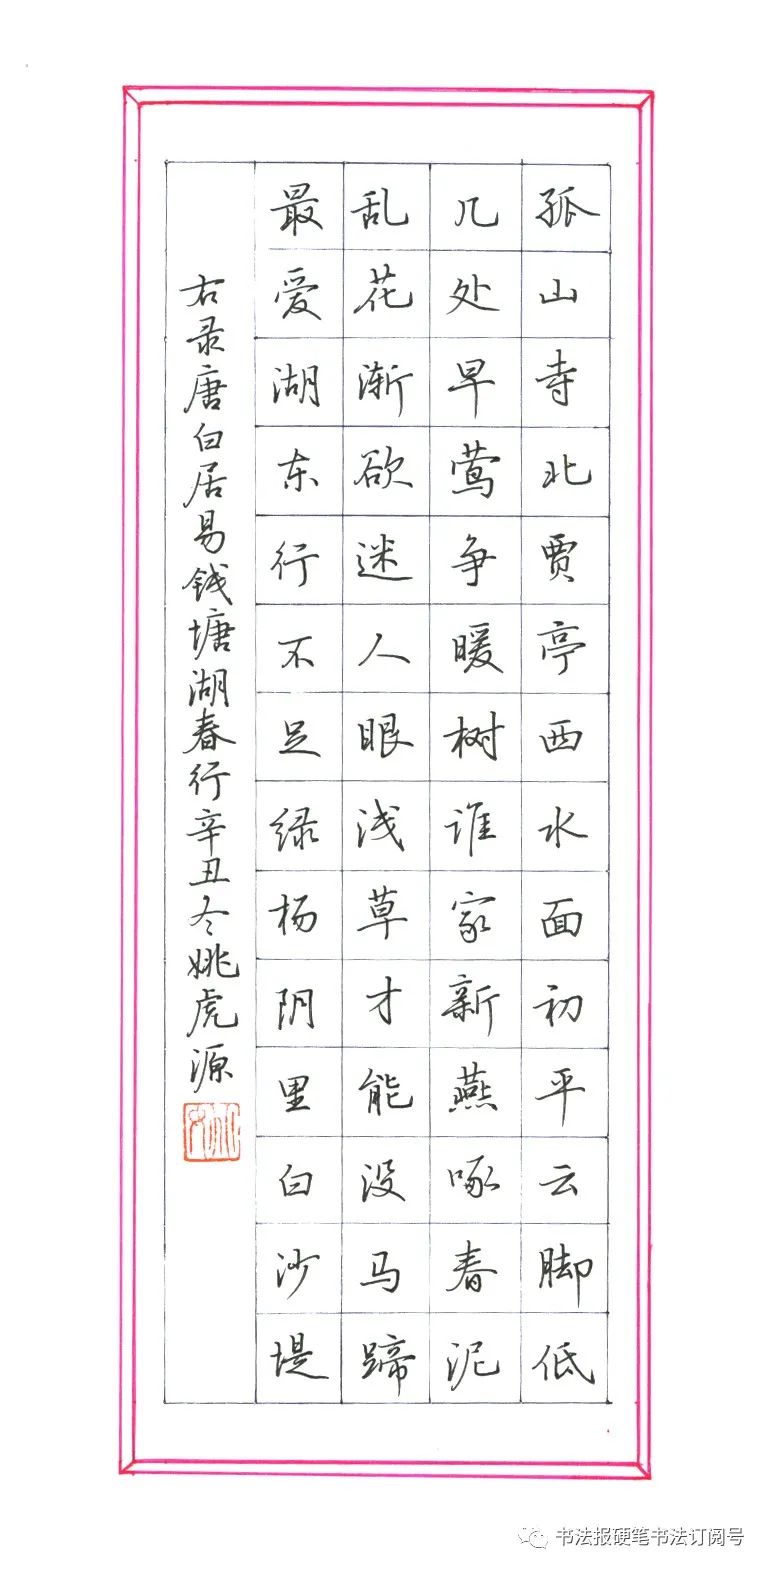 孤山寺北贾亭西水面初平云脚低
几处早莺争暖树谁家新燕啄春泥
乱花渐欲迷人眼浅草才能没马蹄
最爱湖东行不足绿杨阴里白沙堤
右录唐白居易钱塘湖春行辛丑冬姚虎源
书法报硬笔书法订阅号